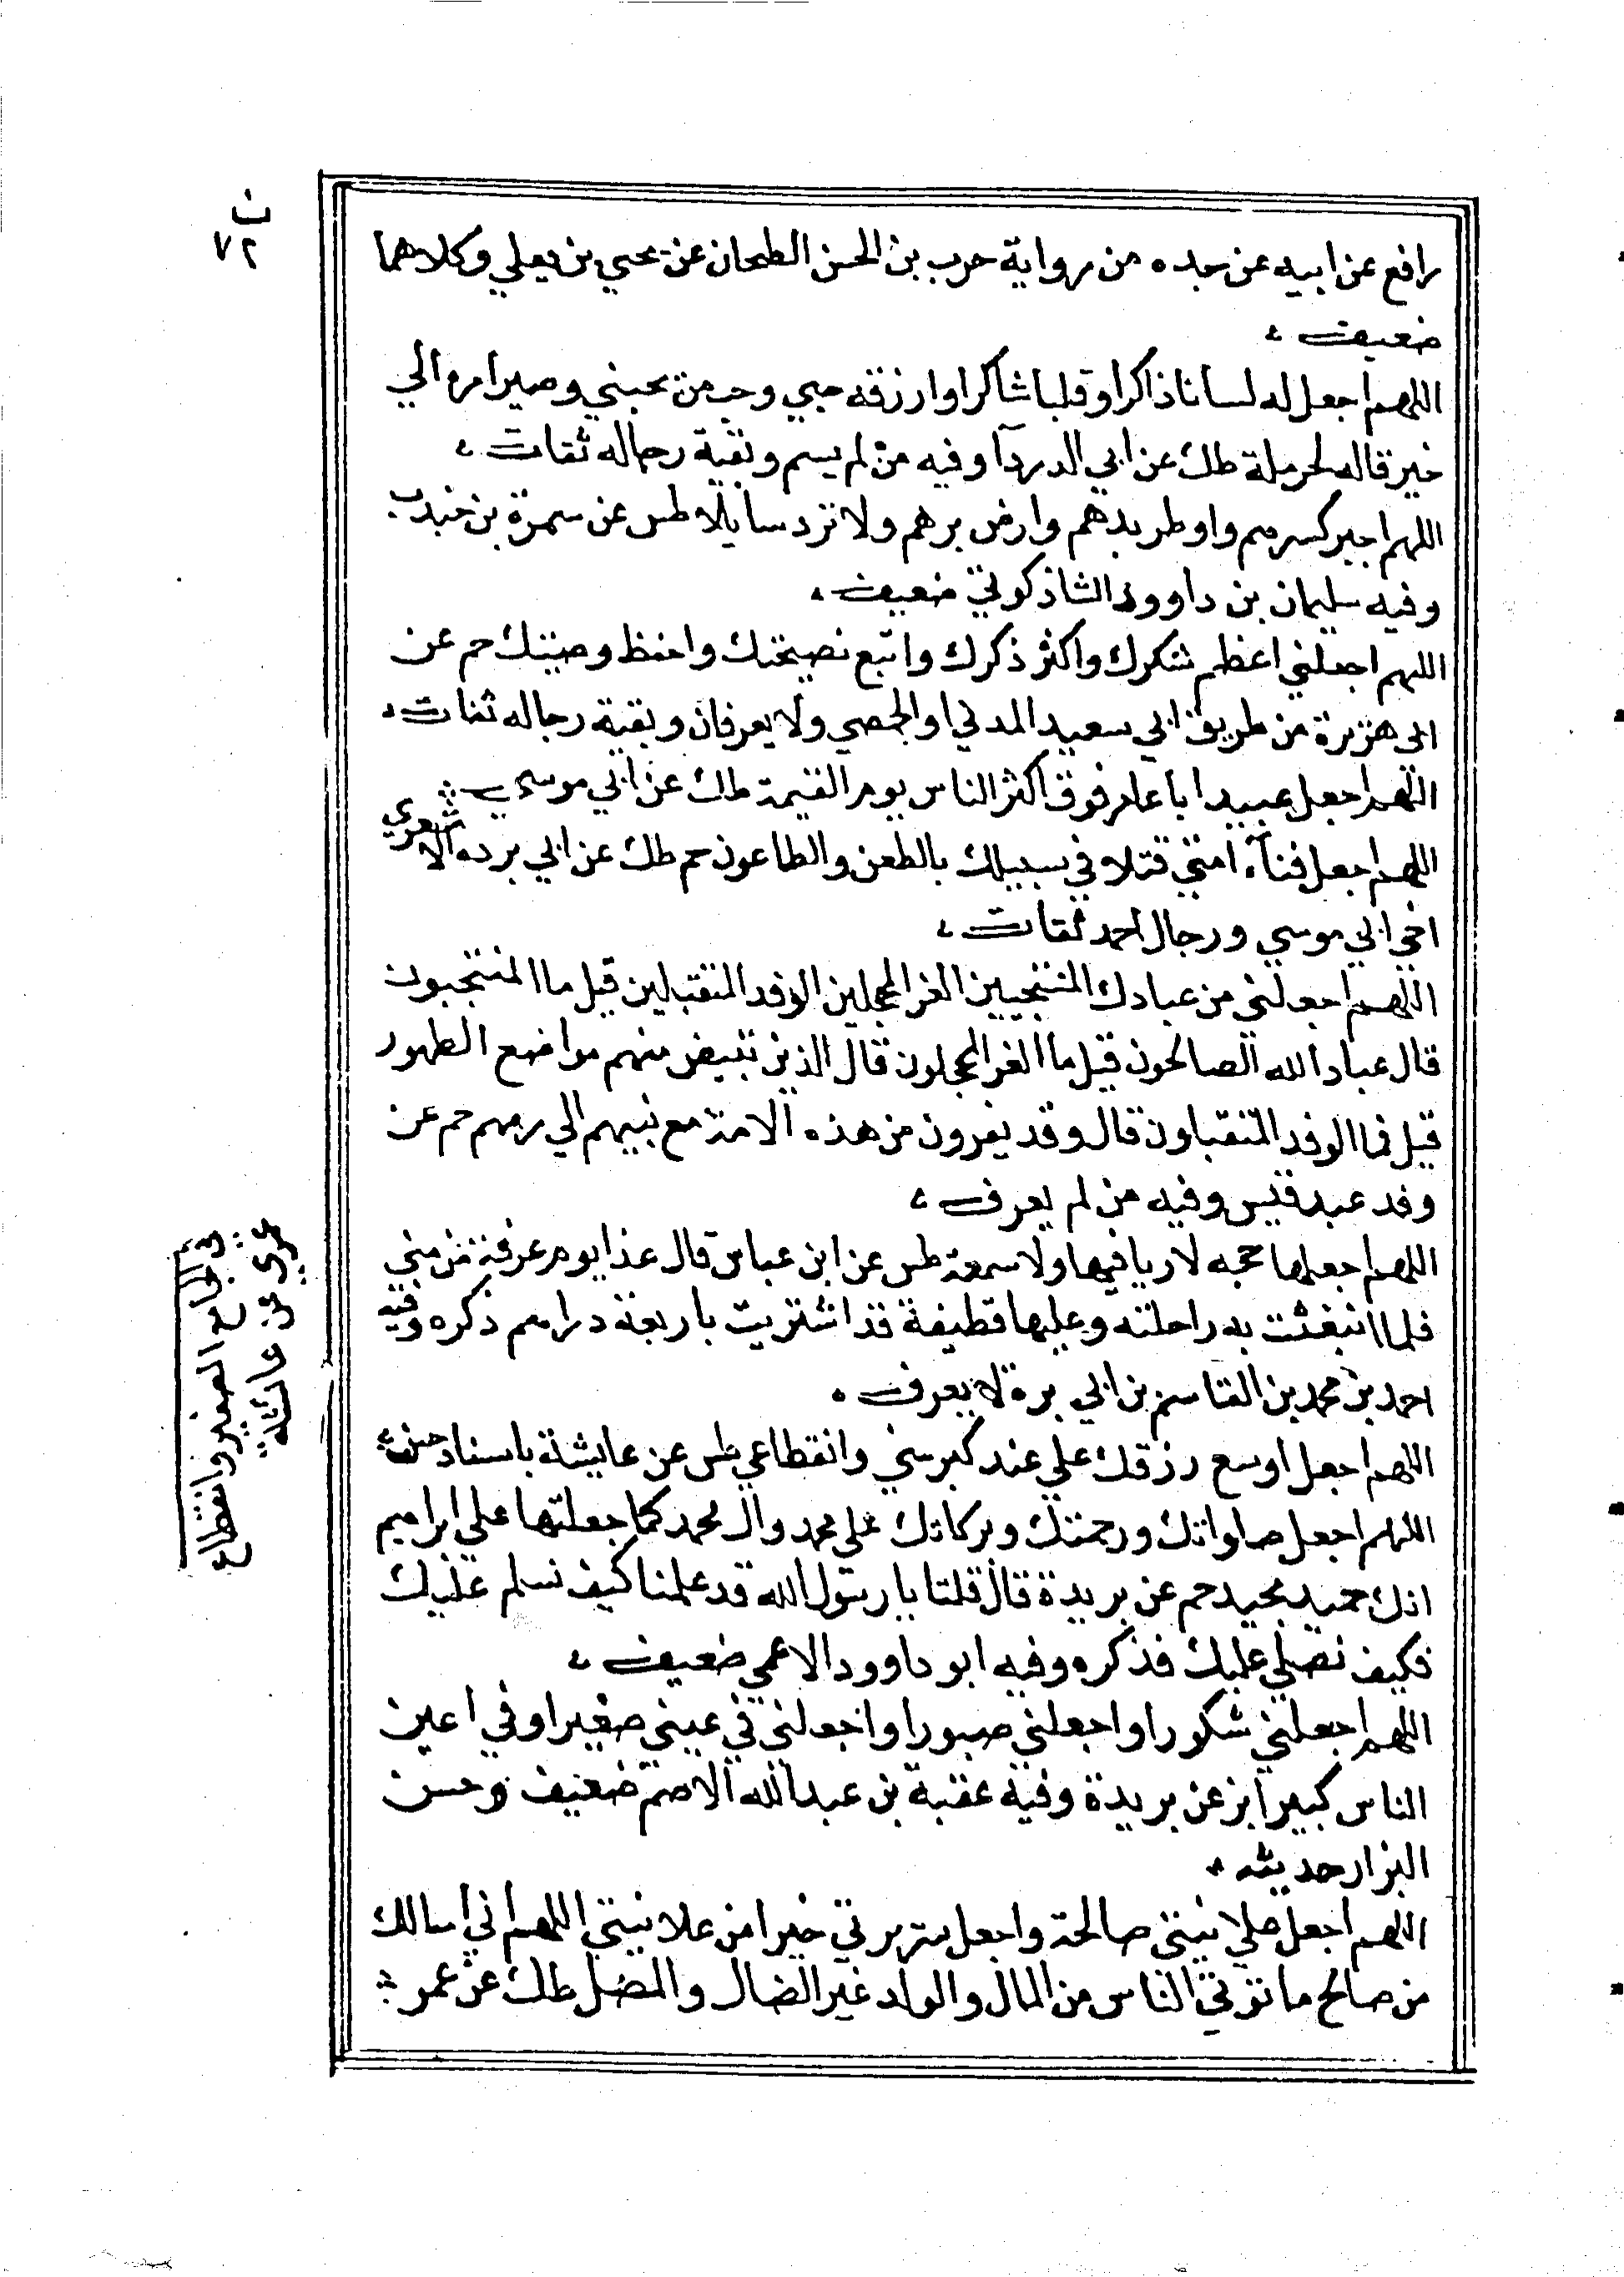 ن
٧٢
رافع عن ابيه عن جده من رواية حرب بن الحسن الطحان عن يحيي بن يعلي وكلاهما
ضعيف
اللهم اجعل له لسانا ذاكرا وقلبا شاكرا وارزقه حبي وحب من يحبني وصير امره الي
خير قاله لحرملة طك عن ابي الدردآ وفيه من لم يسم وبقية رجاله ثقات
اللهم اجبر كسرهم واو طريدهم وارض برهم ولا ترد سايلا طس عن سمرة بن جندب
وفيه سليمان بن داوود الشاذكوني ضعيف
اللهم اجعلني اعظم شكرك واكثر ذكرك واتبع نصيحتك واحفظ وصيتك حم عن
ابي هريرة من طريق ابي سعيد المدني او الحمصي ولا يعرفان وبقية رجاله ثقات
اللهم اجعل عبيدا ابا عامر فوق اكثر الناس يوم القيمة طك عن ابي موسي
اللهم اجعل فنآء امتي قتلا في سبيلك بالطعن والطاعون حم طك عن ابي برده الاشعري
اخي ابي موسي ورجال احمد ثقات
اللهم اجعلني من عبادك المنتجبين الغر المحجلين الوفد المتقبلين قيل ما المنتجبون
قال عباد الله الصالحون قيل ما الغر المحجلون قال الذين تبيض منهم مواضع الطهور
قيل فما الوفد المتقبلون قال وفد يفدون من هذه الامة مع نبيهم الي ربهم حم عن
وفد عبد قيس وفيه من لم يعرف
اللهم اجعلها حجه لا ريا فيها ولا سمعة طس عن ابن عباس قال غدا يوم عرفة من مني
فلما انبعثت به راحلته وعليها قطيفة قد اشتريت باربعة دراهم ذكره وفيه
احمد بن محمد بن القاسم بن ابي بزة لا يعرف
اللهم اجعل اوسع رزقك علي عند كبر سني وانقطاعي طس عن عايشة باسناد حسن
اللهم اجعل صلواتك ورحمتك وبركاتك علي محمد وال محمد كما جعلتها علي ابراهيم
انك حميد مجيد حم عن بريدة قال قلنا يا رسول الله قد علمنا كيف نسلم عليك
فكيف نصلي عليك فذكره وفيه ابو داوود الاعمي ضعيف
اللهم اجعلني شكورا واجعلني صبورا واجعلني في عيني صغيرا وفي اعين
الناس كبيرا بز عن بريدة وفيه عقبة بن عبد الله الاصم ضعيف وحسن
البزار حديثه
اللهم اجعل علانيتي صالحة واجعل سريرتي خيرا من علانيتي اللهم اني اسالك
من صالح ما توتي الناس من المال والولد غير الضال والمضل طك عن عمر
في الجامع الصغير وانقطاع
عمري عن عائشة